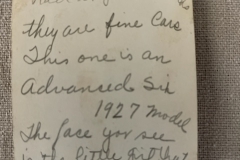 they are fine Cars
This one is an
Advanced Six
1927 model
The face you see
is the little girl that